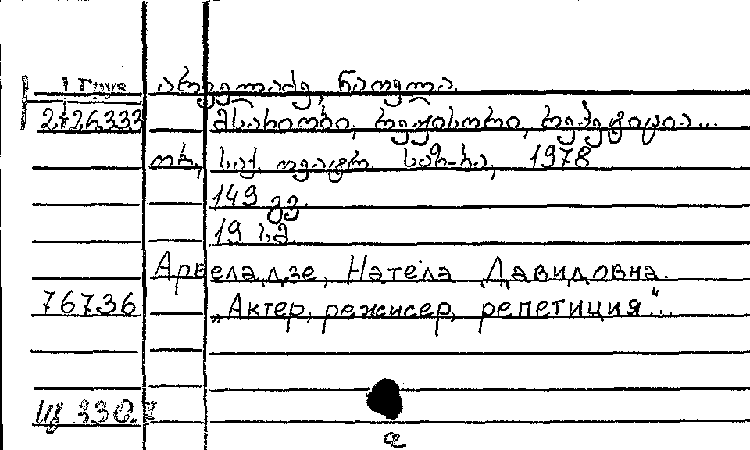 არველაძე, ნათელა
2Г26.333 მსახიობი, რეჟისორი, რეპეტიცია...
თბ., საქ. თეატრ. საზ-ბა, 1978
149 გვ.
19 სმ.
Арвеладзе, Натела Давидовна.
76736 „Актер, режисер, репетиция"...